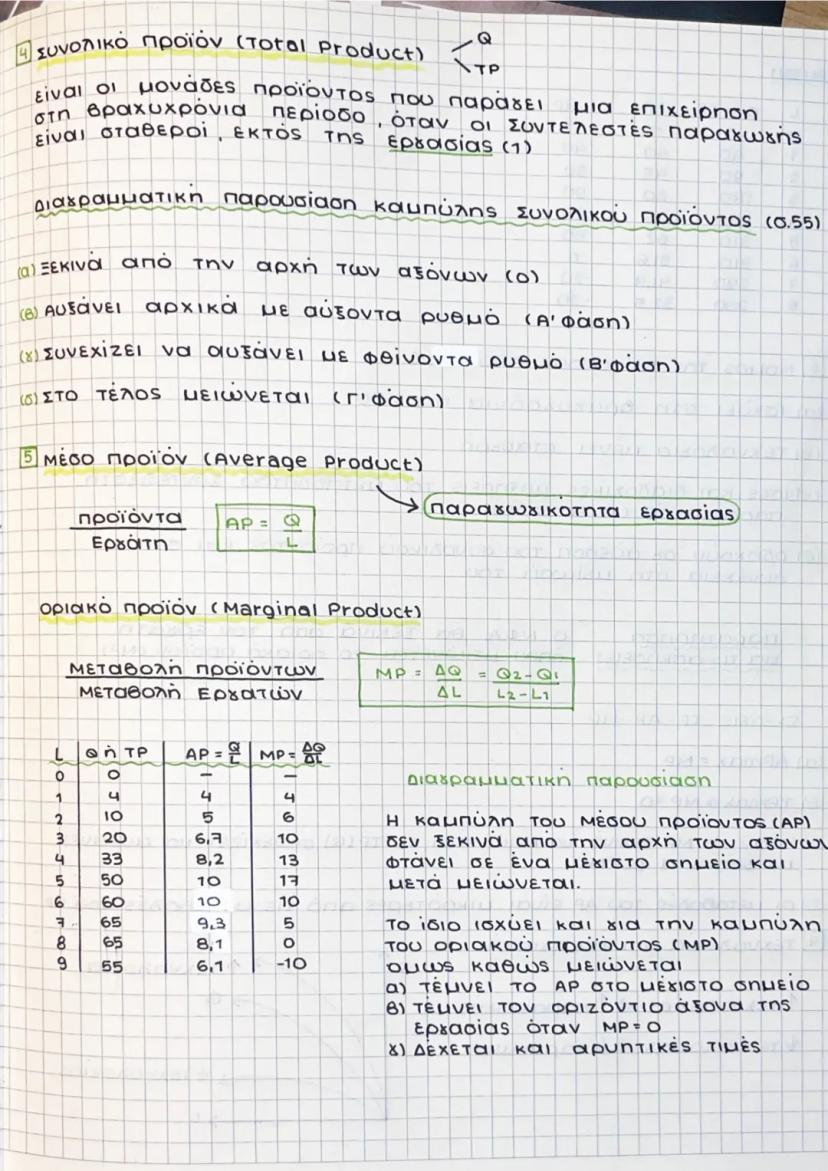 4 Συνολικό προϊόν (Total Product) Q
TP
είναι οι μονάδες προϊόντος που παράγει μια επιχείρηση
στη βραχυχρόνια περίοδο, όταν οι συντελεστές παραγωγής
είναι σταθεροί, εκτός της εργασίας (1)
Διαγραμματική παρουσίαση καμπύλης συνολικού προϊόντος (σ.55)
(α) Ξεκινά από την αρχή των αξόνων (0)
(β) Αυξάνει αρχικά με αύξοντα ρυθμό (Α' φάση)
(γ) Συνεχίζει να αυξάνει με φθίνοντα ρυθμό (Β' φάση)
(δ) Στο τέλος μειώνεται (Γ' φάση)
5 Μέσο προϊόν (Average Product)
παραγωγικότητα εργασίας
προϊόντα
Εργάτη
AP = Q
L
Οριακό προϊόν (Marginal Product)
Μεταβολή προϊόντων
Μεταβολή Εργατών
MP = ΔQ = Q2 - Q1
ΔL L2 - L1
L Q ή TP AP = Q/L MP = ΔQ/ΔL
0 0 – –
1 4 4 4
2 10 5 6
3 20 6,7 10
4 33 8,2 13
5 50 10 17
6 60 10 10
7 65 9,3 5
8 65 8,1 0
9 55 6,1 -10
Διαγραμματική παρουσίαση
Η καμπύλη του Μέσου προϊόντος (AP)
δεν ξεκινά από την αρχή των αξόνων
φτάνει σε ένα μέγιστο σημείο και
μετά μειώνεται.
Το ίδιο ισχύει και για την καμπύλη
του οριακού προϊόντος (MP)
όμως καθώς μειώνεται
α) τέμνει το AP στο μέγιστο σημείο
β) τέμνει τον οριζόντιο άξονα της
εργασίας όταν MP = 0
γ) Δέχεται και αρνητικές τιμές